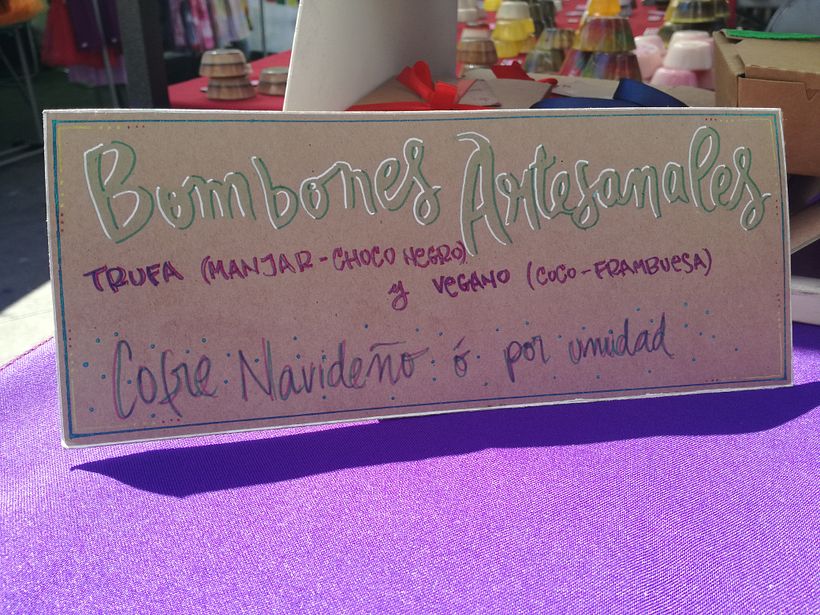 Bombones Artesanales
TRUFA (MANJAR - CHOCO NEGRO)
y VEGANO (COCO - FRAMBUESA)
Cofre Navideño ó por unidad